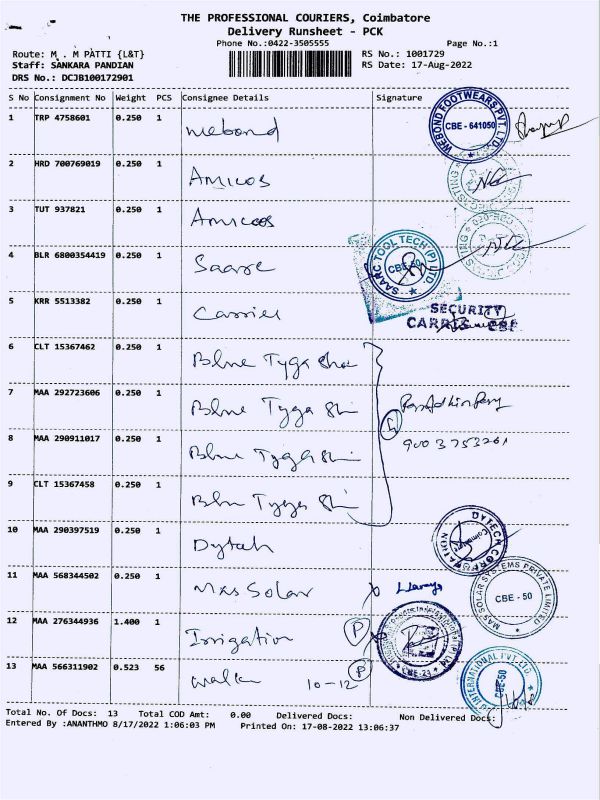 THE PROFESSIONAL COURIERS, Coimbatore
Delivery Runsheet - PCK
Phone No.:0422-3505555 Page No.:1
Route: M . M PATTI {L&T} RS No.: 1001729
Staff: SANKARA PANDIAN RS Date: 17-Aug-2022
DRS No.: DCJB100172901
S No Consignment No Weight PCS Consignee Details Signature
1 TRP 4758601 0.250 1 Webond
WEBOND FOOTWEARS PVT. LTD. CBE - 641050
2 HRD 700769019 0.250 1 Amicos
3 TUT 937821 0.250 1 Amicos
4 BLR 6800354419 0.250 1 Saarc
SAARC TOOL TECH (P) LTD. CBE-50
5 KRR 5513382 0.250 1 Carrier
SECURITY
6 CLT 15367462 0.250 1 Blue Tyga
7 MAA 292723606 0.250 1 Blue Tyga
8 MAA 290911017 0.250 1 Blue Tyga
9 CLT 15367458 0.250 1 Tyga
10 MAA 290397519 0.250 1
DYTECH CORPORATION
11 MAA 568344502 0.250 1 Mas Solar
MAS SOLAR SYSTEMS PRIVATE LIMITED CBE - 50
12 MAA 276344936 1.400 1 Irrigation P
CBE-23
13 MAA 566311902 0.523 56 10-12 P
INTERNATIONAL PVT. LTD. CBE-50
Total No. Of Docs: 13 Total COD Amt: 0.00 Delivered Docs: Non Delivered Docs:
Entered By :ANANTHMO 8/17/2022 1:06:03 PM Printed On: 17-08-2022 13:06:37